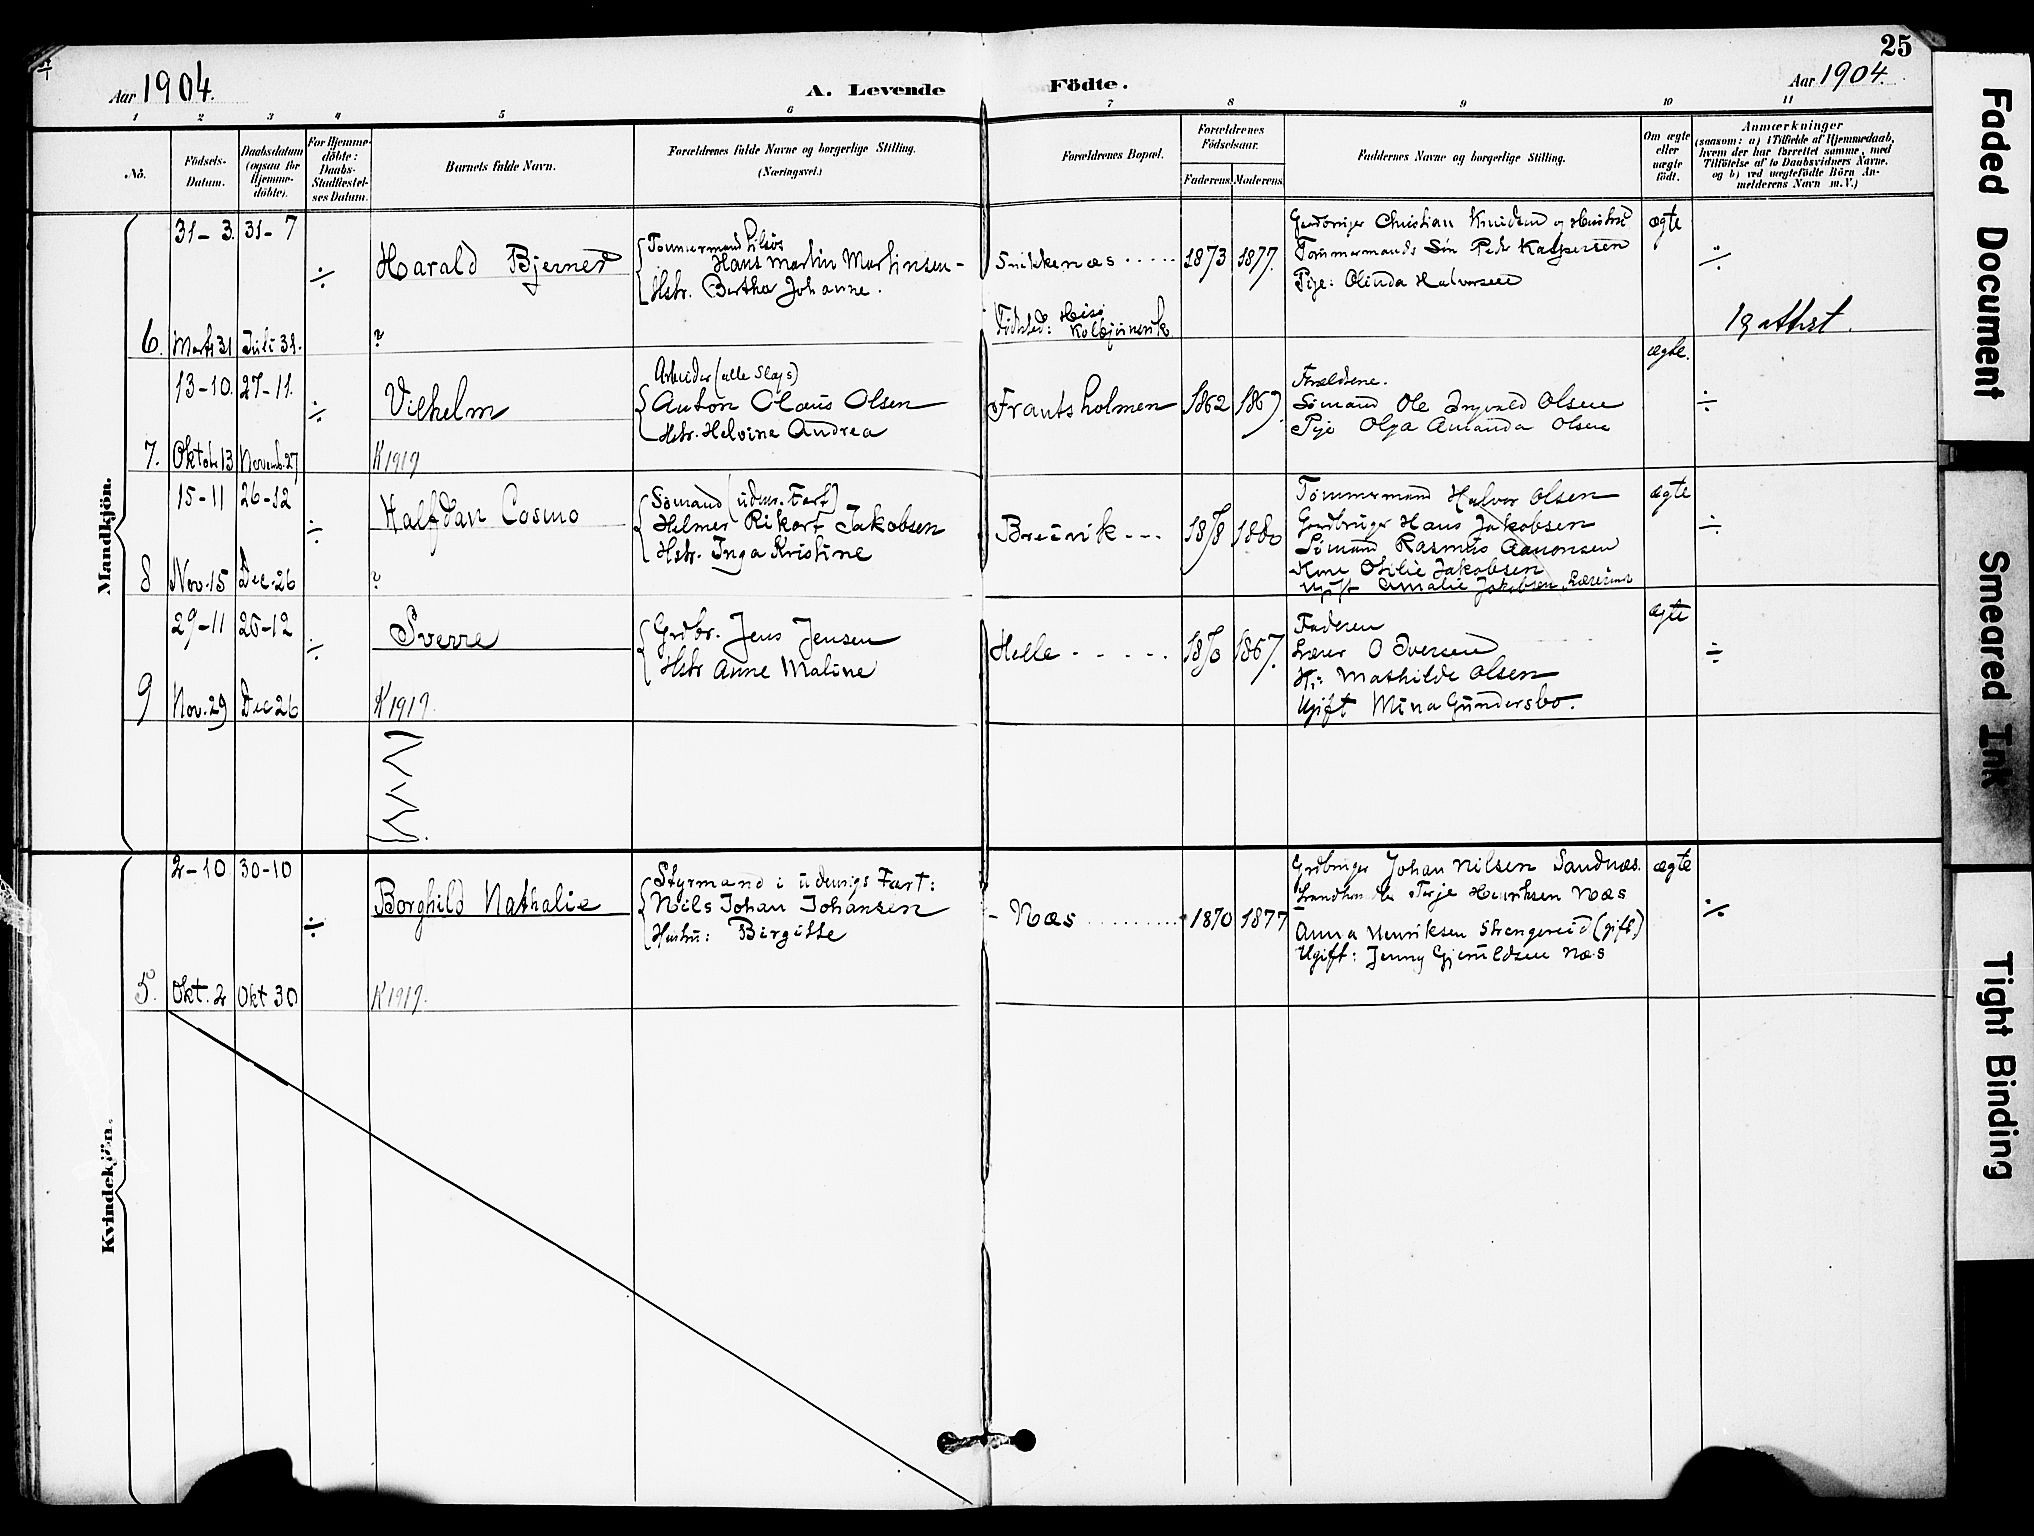 25
Aar 1904.
A. Levende Födte.
Aar 1904.
1 2 3 4 5 6 7 8 9 10 11
No.
Födsels-
Datum.
Daabsdatum
(ogsaa for
Hjemme-
döbte).
For Hjemme-
döbte:
Daabs-
Stadfæstel-
ses Datum.
Barnets fulde Navn.
Forældrenes fulde Navne og borgerlige Stilling.
(Næringsvei.)
Forældrenes Bopæl.
Forældrenes
Födselsaar.
Faderens Moderens
Faddernes Navne og borgerlige Stilling.
Om ægte
eller
uægte
födt.
Anmærkninger
(saasom: a) i Tilfælde af Hjemmedaab,
hvem der har forrettet samme, med
Tilföielse af to Daabsvidners Navne,
og b) ved uægtefödte Börn An-
melderens Navn m. V.)
Mandkjön.
31-3. 31-7
÷
Harald Bjerned
Tømmermand
Hans Martin Martinsen-
Hstr. Bertha Johanne.
Snikkenæs
1873 1877.
Gaardbruger Christian Knudsen og Hustru
Tømmermands Søn Peder Kaspersen
Pige: Olinda Halvorsen
ægte
÷
6. Marts 31 Juli 31.
?
Fødested: Hisø
Kolbjørnsvik
1g attest.
13-10. 27-11.
÷
Vilhelm
Arbeider (alle Slags)
Anton Olaus Olsen
Hstr. Helvine Andrea
Frantsholmen
1862 1869.
Forældrene.
Sømand Ole Ingvald Olsen
Pige Olga Amanda Olsen
ægte.
÷
7. Oktober 13 Novemb. 27
K1919
15-11 26-12
÷
Halfdan Cosmo
Sømand (udenr. Fart)
Helmer Rikart Jakobsen
Hstr. Inga Kristine
Breivik
1878 1880
Tømmermand Halvor Olsen
Gaardbruger Hans Jakobsen
Sømand Rasmus Aanonsen
Kone Otilie Jakobsen
Ugift Amalie Jakobsen, Lærerinde
ægte
÷
8 Nov. 15 Dec. 26
?
29-11 26-12
÷
Sverre
Grdbr. Jens Jensen
Hstr Anne Maline
Helle
1870 1867.
Faderen
Lærer O Iversen
H: Mathilde Olsen
Ugift Mina Gundersbo.
ægte
÷
9 Nov. 29 Dec 26
K1919.
Kvindekjön.
2-10 30-10
÷
Borghild Nathalie
Styrmand i udenrigs Fart:
Nils Johan Johansen
Hustru: Birgitte
Næs
1870 1877
Grdbruger Johan Nilsen Sandnæs.
Terje Henriksen Næs
Anna Henriksen Strengereid (gift)
Ugift: Jenny Gjeruldsen Næs
ægte
÷
5. Okt. 2 Okt 30
K1919.
Faded Document
Smeared Ink
Tight Binding